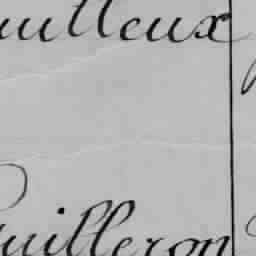 uilleux
Guilleron